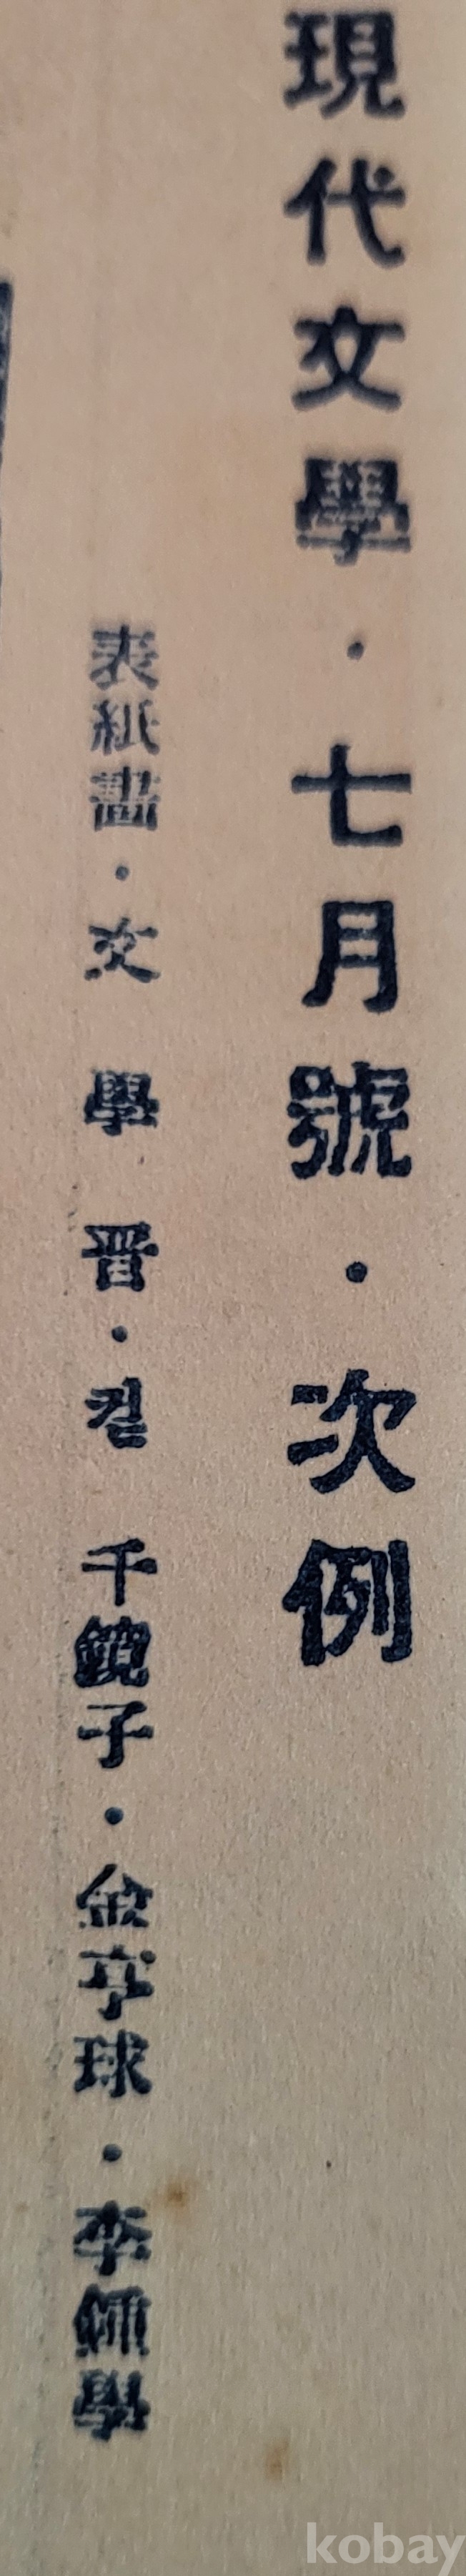 現代文學·七月號·次例
表紙畵·文 學 晋·컽 千鏡子·金亨球·李舜學
kobay